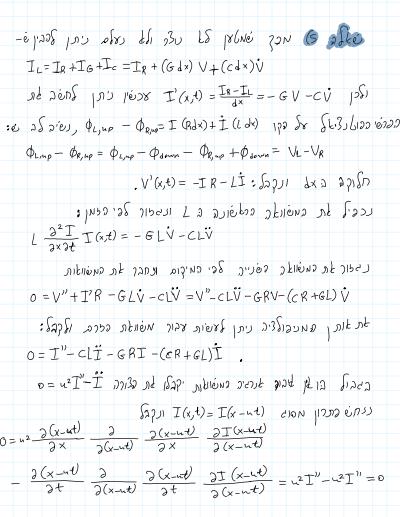 שאלה G מכך שמטען לא נוצר ולא נעלם ניתן להבין ש-
I_L = I_R + I_G + I_C = I_R + (G dx) V + (C dx) V̇
ולכן I'(x,t) = (I_R - I_L)/dx = -GV - CV̇ עכשיו ניתן לחשב את
הפרש הפוטנציאל על פקו Φ_{L,up} - Φ_{R,up} = I (R dx) + İ (L dx), נשים לב ש:
Φ_{L,up} - Φ_{R,up} = Φ_{L,up} - Φ_{down} - Φ_{R,up} + Φ_{down} = V_L - V_R
נחלק ב dx ונקבל: V'(x,t) = -IR - Lİ.
נכפיל את המשוואה הראשונה ב L ונגזור לפי הזמן:
L ∂²I/∂x∂t I(x,t) = -GLV̇ - CLV̈
נגזור את המשוואה השנייה לפי המיקום ונחבר את המשוואות
0 = V'' + I'R - GLV̇ - CLV̈ = V'' - CLV̈ - GRV - (CR + GL) V̇
את אותן מניפולציה ניתן לעשות עבור משוואת הזרם ולקבל:
0 = I'' - CLÏ - GRI - (CR + GL)İ .
בגבול בו אין איבוד אנרגיה המשוואות יקבלו את הצורה 0 = u²I'' - Ï
ננחש פתרון מסוג I(x,t) = I(x-ut) ונקבל
0 = u² ∂(x-ut)/∂x ∂/∂(x-ut) ∂(x-ut)/∂x ∂I(x-ut)/∂(x-ut)
- ∂(x-ut)/∂t ∂/∂(x-ut) ∂(x-ut)/∂t ∂I(x-ut)/∂(x-ut) = u²I'' - u²I'' = 0